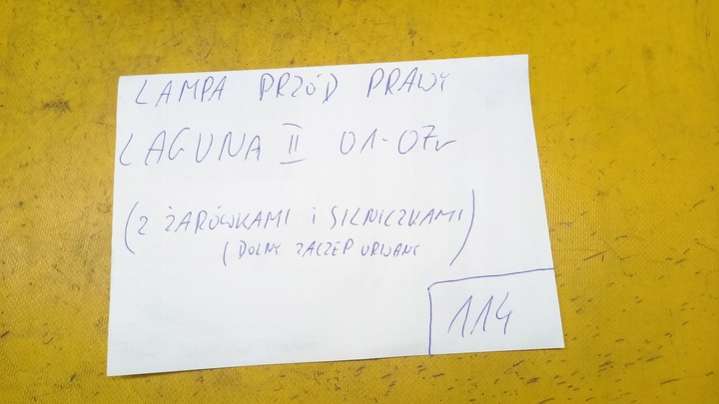 LAMPA PRZÓD PRAWY
LAGUNA II 01-07r
(Z ŻARÓWKAMI i SILNICZKAMI)
(DOLNY ZACZEP URWANY
114